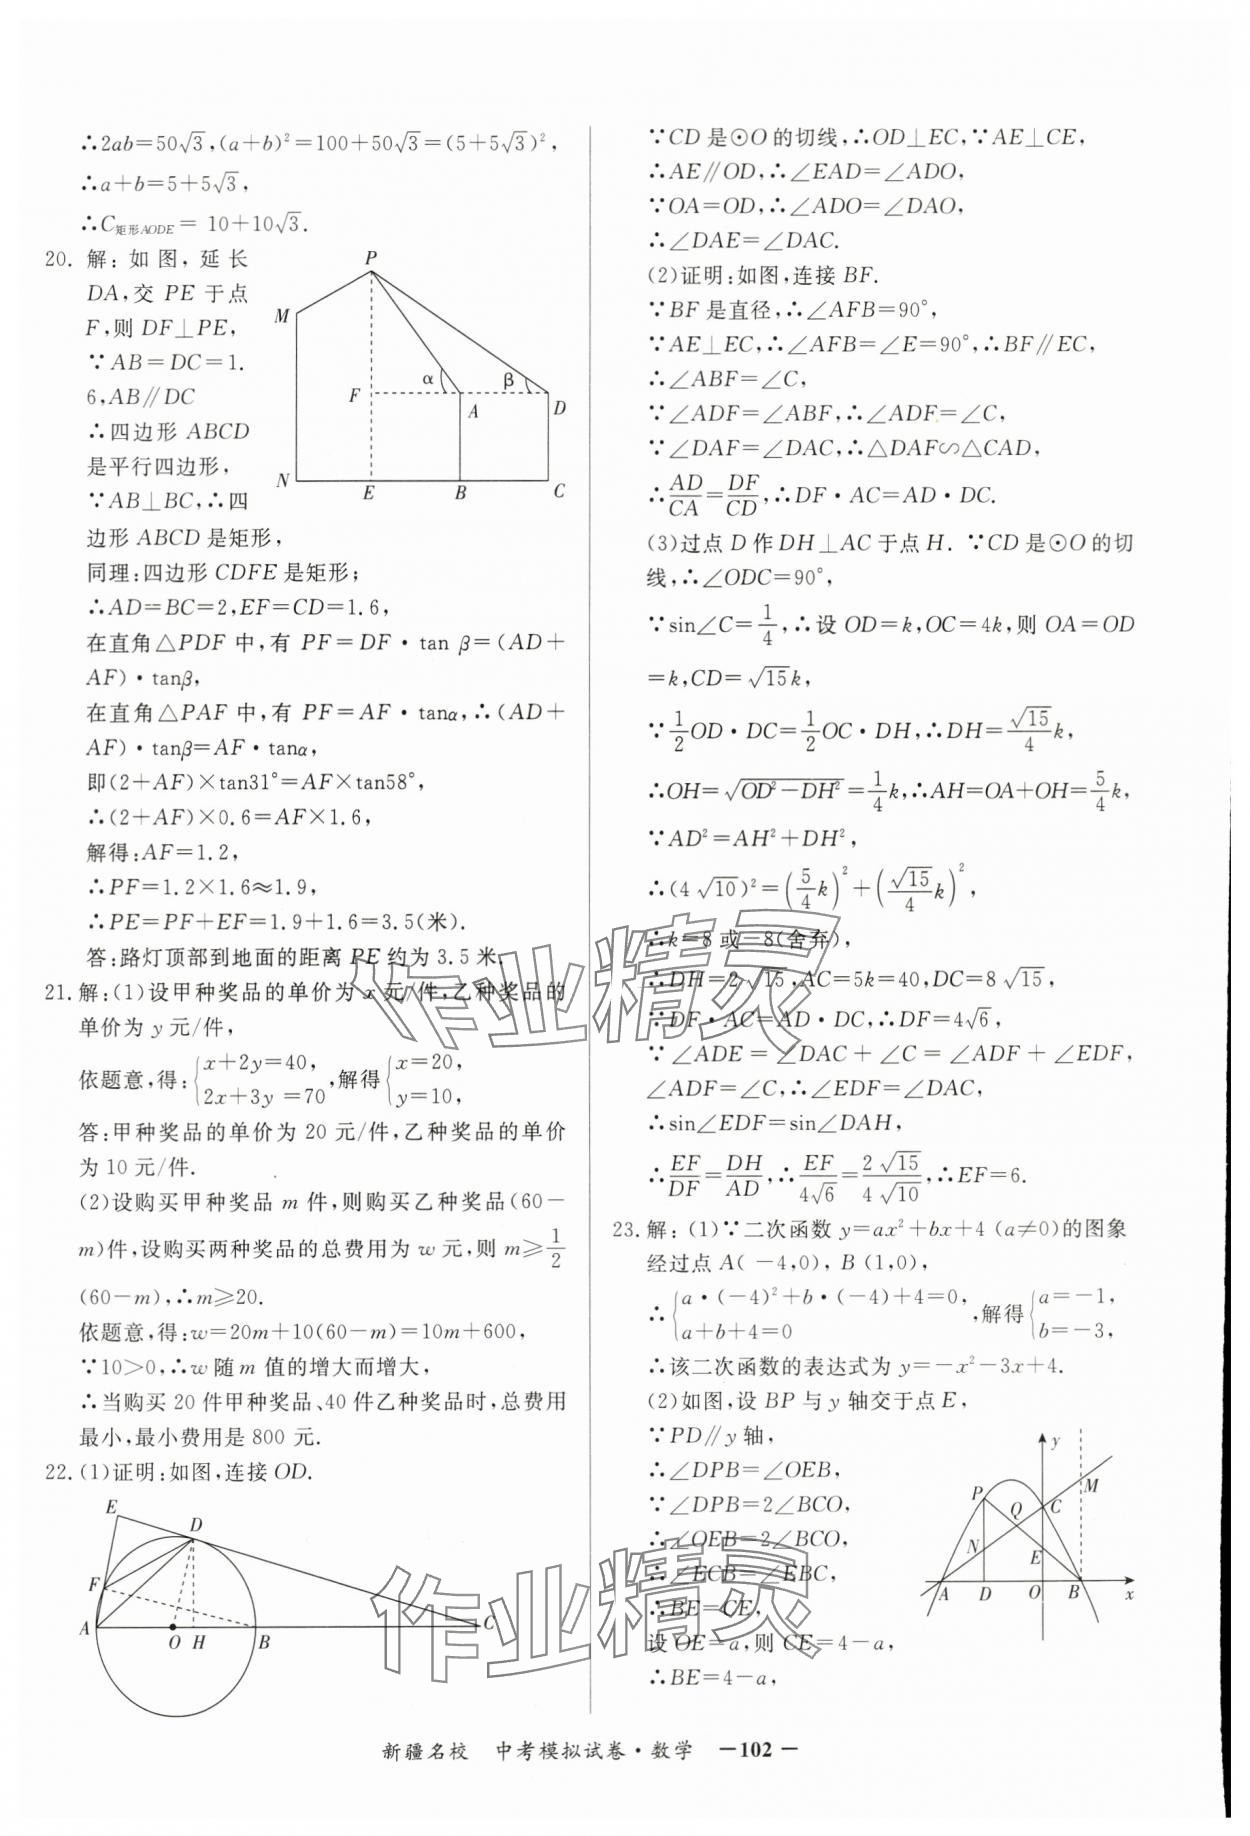 ∴2ab=50√3,(a+b)²=100+50√3=(5+5√3)²,
∴a+b=5+5√3,
∴C矩形AODE= 10+10√3.
20. 解:如图,延长
DA,交 PE 于点
F,则 DF⊥PE,
∵AB=DC=1.
6,AB∥DC
∴四边形 ABCD
是平行四边形,
∵AB⊥BC,∴四
边形 ABCD 是矩形,
P
M
α
β
F
A
D
N
E
B
C
同理:四边形 CDFE 是矩形;
∴AD=BC=2,EF=CD=1.6,
在直角△PDF 中,有 PF=DF·tan β=(AD+
AF)·tanβ,
在直角△PAF 中,有 PF=AF·tanα,∴(AD+
AF)·tanβ=AF·tanα,
即(2+AF)×tan31°=AF×tan58°,
∴(2+AF)×0.6=AF×1.6,
解得:AF=1.2,
∴PF=1.2×1.6≈1.9,
∴PE=PF+EF=1.9+1.6=3.5(米).
答:路灯顶部到地面的距离 PE 约为 3.5 米.
21. 解:(1)设甲种奖品的单价为 x 元/件,乙种奖品的
单价为 y 元/件,
依题意,得:{x+2y=40, 2x+3y =70,解得{x=20, y=10,
答:甲种奖品的单价为 20 元/件,乙种奖品的单价
为 10 元/件.
(2)设购买甲种奖品 m 件,则购买乙种奖品(60-
m)件,设购买两种奖品的总费用为 w 元,则 m≥1/2
(60-m),∴m≥20.
依题意,得:w=20m+10(60-m)=10m+600,
∵10>0,∴w 随 m 值的增大而增大,
∴当购买 20 件甲种奖品、40 件乙种奖品时,总费用
最小,最小费用是 800 元.
22. (1)证明:如图,连接 OD.
E
D
F
A
O
H
B
C
∵CD 是⊙O 的切线,∴OD⊥EC,∵AE⊥CE,
∴AE∥OD,∴∠EAD=∠ADO,
∵OA=OD,∴∠ADO=∠DAO,
∴∠DAE=∠DAC.
(2)证明:如图,连接 BF.
∵BF 是直径,∴∠AFB=90°,
∵AE⊥EC,∴∠AFB=∠E=90°,∴BF∥EC,
∴∠ABF=∠C,
∵∠ADF=∠ABF,∴∠ADF=∠C,
∵∠DAF=∠DAC,∴△DAF∽△CAD,
∴AD/CA=DF/CD,∴DF·AC=AD·DC.
(3)过点 D 作 DH⊥AC 于点 H. ∵CD 是⊙O 的切
线,∴∠ODC=90°,
∵sin∠C=1/4,∴设 OD=k,OC=4k,则 OA=OD
=k,CD=√15k,
∵1/2OD·DC=1/2OC·DH,∴DH=√15/4k,
∴OH=√(OD²-DH²)=1/4k,∴AH=OA+OH=5/4k,
∵AD²=AH²+DH²,
∴(4√10)²=(5/4k)²+(√15/4k)²,
∴k=8 或-8(舍弃),
∴DH=2√15,AC=5k=40,DC=8√15,
∵DF·AC=AD·DC,∴DF=4√6,
∵∠ADE=∠DAC+∠C=∠ADF+∠EDF,
∠ADF=∠C,∴∠EDF=∠DAC,
∴sin∠EDF=sin∠DAH,
∴EF/DF=DH/AD,∴EF/4√6=2√15/4√10,∴EF=6.
23. 解:(1)∵二次函数 y=ax²+bx+4 (a≠0)的图象
经过点 A(-4,0), B(1,0),
∴{a·(-4)²+b·(-4)+4=0, a+b+4=0,解得{a=-1, b=-3,
∴该二次函数的表达式为 y=-x²-3x+4.
(2)如图,设 BP 与 y 轴交于点 E,
∵PD∥y 轴,
∴∠DPB=∠OEB,
∵∠DPB=2∠BCO,
∴∠OEB=2∠BCO,
∴∠ECB=∠EBC,
∴BE=CE,
设 OE=a,则 CE=4-a,
∴BE=4-a,
y
M
P
Q
C
N
E
A
D
O
B
x
新疆名校 中考模拟试卷·数学 —102—
作业精灵
作业精灵